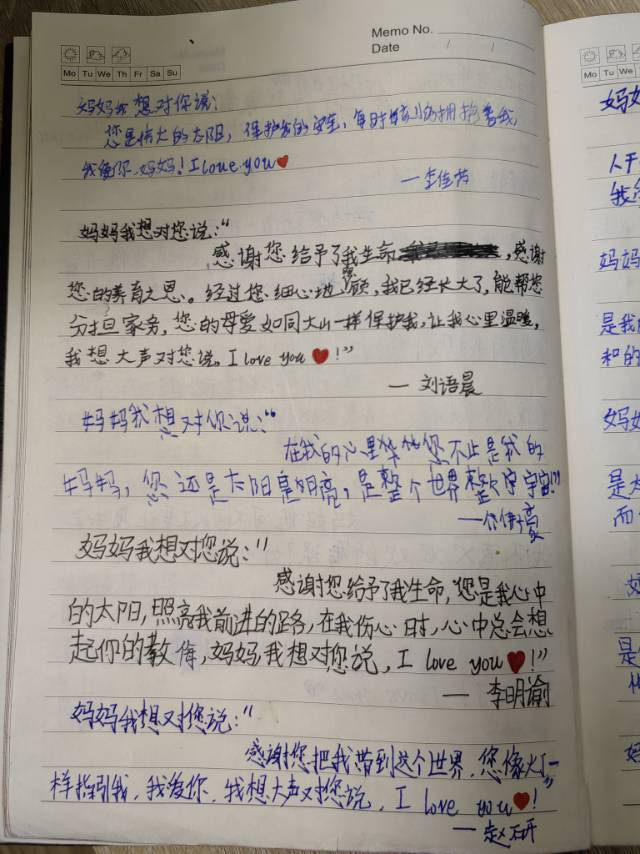 Memo No.
Date / /
Mo Tu We Th Fr Sa Su
妈妈我想对你说:
您是伟大的太阳,保护我的安全,每时每刻的拥护着我,
我爱你,妈妈!I love you❤
—李佳
妈妈我想对您说:“
感谢您给予了我生命,感谢
您的养育之恩。经过您细心地照顾,我已经长大了,能帮您
分担家务,您的母爱如同大山一样保护我,让我心里温暖,
我想大声对您说。I love you ❤!”
— 刘语晨
妈妈我想对你说:“
在我的心里您不止是我的
妈妈,您还是太阳是月亮,是整个世界整个宇宙!”
豪
妈妈我想对您说:“
感谢您给予了我生命,您是我心中
的太阳,照亮我前进的路,在我伤心时,心中总会想
起你的教诲,妈妈,我想对您说,I love you❤!”
— 李明谕
妈妈我想对您说:“
感谢您把我带到这个世界,您像火一
样指引我,我爱你,我想大声对您说,I love you❤!”
—赵研
Mo Tu We
妈妈
人干
我
妈妈
是我
和的
妈妈
是太
而
是
妈